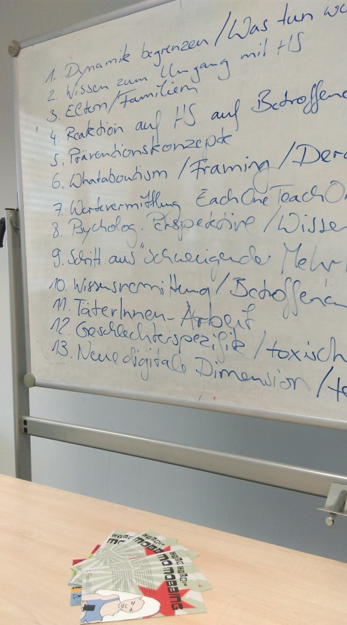 1. Dynamik begrenzen / Was tun
2. Wissen zum Umgang mit HS
3. Eltern/Familien
4. Reaktion auf HS auf Betroffene
5. Präventionskonzepte
6. Whataboutism / Framing /
7. Wertevermittlung EachOneTeachO
8. Psycholog. Perspektive / Wisse
9. Schritt aus "schweigender Mehr
10. Wissensvermittlung / Betroffen
11. TäterInnen-Arbeit
12. Geschlechterspezifik / toxisch
13. Neue digitale Dimension /
MOBBING